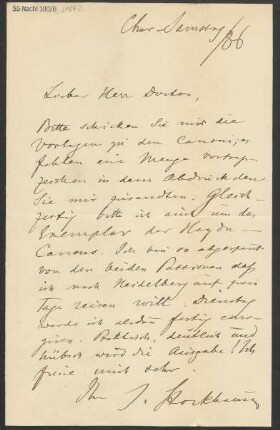 55 Nachl 100/B
Char-Samstag /86
Lieber Herr Doctor,
Bitte schicken Sie mir die
Vorlagen zu den Canons; es
fehlen eine Menge Vortrags-
zeichen in dem Abdruck den
Sie mir zusandten. Gleich-
zeitig bitte ich auch um das
Exemplar der Haydn-
Canons. Ich bin so abgespannt
von den beiden Passionen daß
ich nach Heidelberg auf zwei
Tage reisen will. Dienstag
werde ich alsdann fertig corri-
giren. Praktisch, deutlich und
hübsch wird die Ausgabe! Ich
freue mich sehr.
Ihr J. Stockhausen